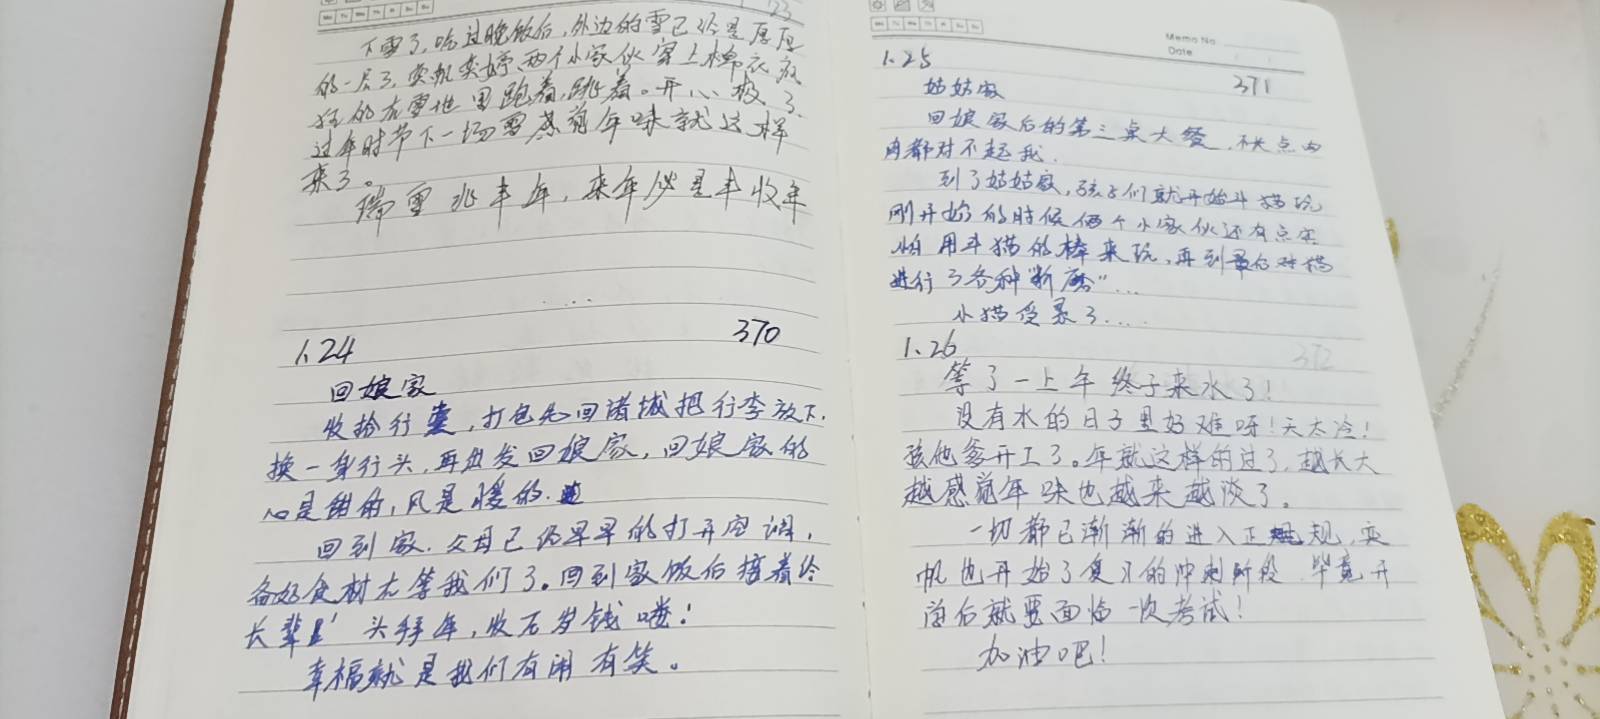 1.23
下雪了，吃过晚饭后，外边的雪已经是厚厚
的一层了，奕帆奕婷两个小家伙穿上棉衣疯
狂的在雪地里跑着，跳着。开心极了，
过年时节下一场雪感觉年味就这样
来了。
瑞雪兆丰年，来年必是丰收年
....
1.24 370
回娘家
收拾行囊，打包先回诸城把行李放下.
换一身行头，再出发回娘家，回娘家的
心是甜的，风是暖的.
回到家.父母已经早早的打开空调，
备好食材在等我们了。回到家饭后接着给
长辈 头拜年，收压岁钱喽!
幸福就是我们有闹有笑。
Memo No.
Date
1.25 371
姑姑家
回娘家后的第三桌大餐，不长点肉
肉都对不起我.
到了姑姑家，孩子们就开始斗猫玩
刚开始的时候俩个小家伙还有点害
怕用斗猫的棒来玩，再到最后对猫
进行了各种"折磨"...
小猫受累了....
1.26 372
等了一上午终于来水了!
没有水的日子里好难呀!天太冷!
孩他爹开工了。年就这样的过了，越长大
越感觉年味也越来越淡了。
一切都已渐渐的进入正规，奕
帆也开始了复习的冲刺阶段，毕竟开
学后就要面临一次考试!
加油吧!